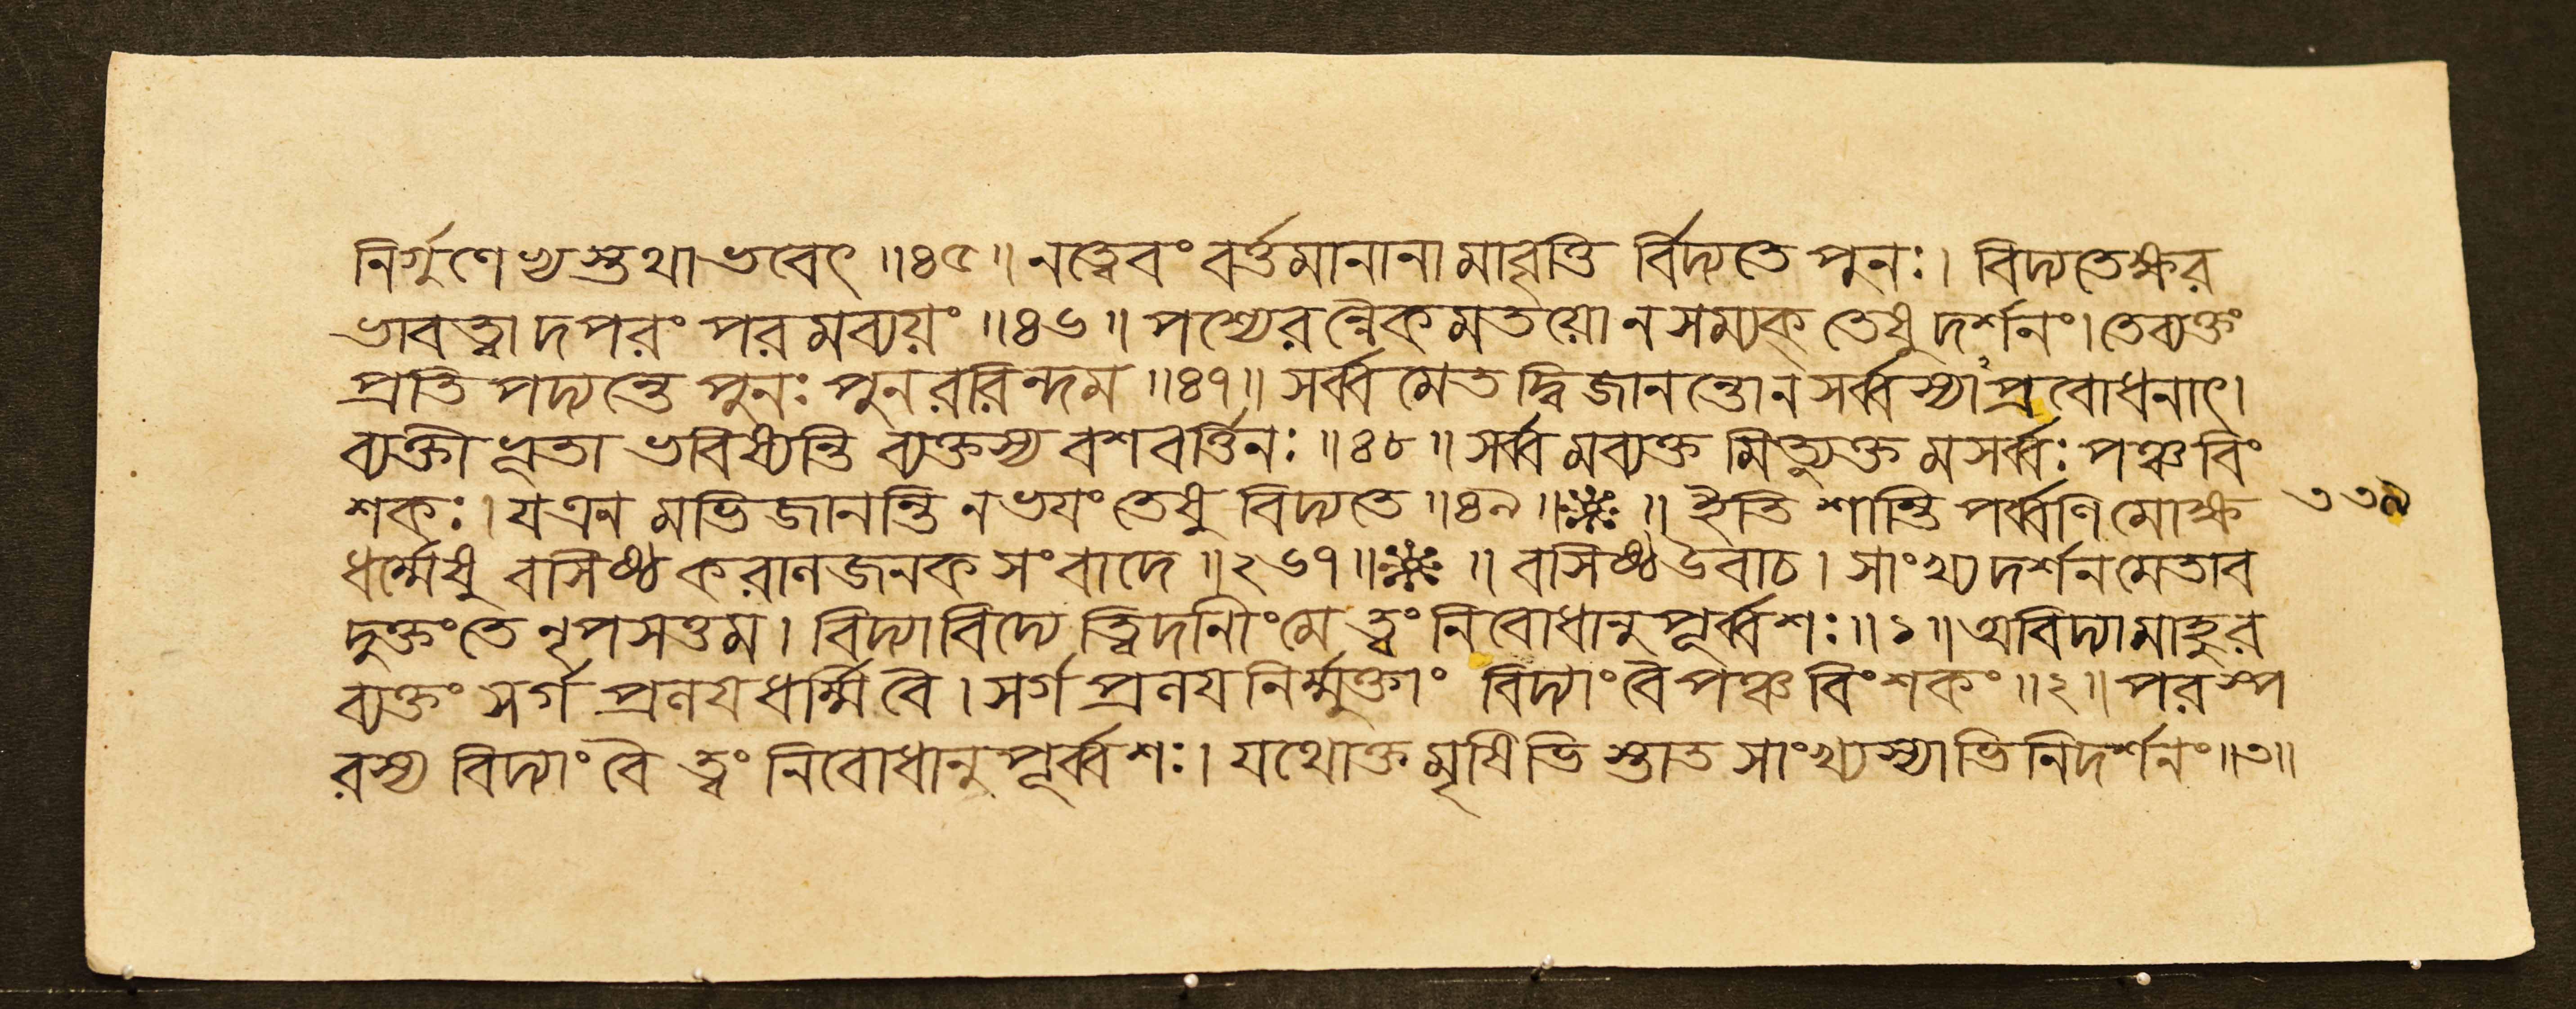 নির্গুণেপ্যস্তুথাভবেৎ ॥৪৫॥ নত্বেবং বর্ত্তমানানামাবৃত্তি র্বিদ্যতে পুনঃ। বিদ্যতেক্ষর
ভাবত্বাদপরং পরমব্যয়ং ॥৪৬॥ পশ্যেরন্নৈকমতয়োনসম্যক্ তেষু দর্শনং। তেব্যক্তং
প্রতি পদ্যন্তে পুনঃ পুনররিন্দম ॥৪৭॥ সর্ব্বমেতদ্বিজানন্তোনসর্ব্বস্যাঽপ্রবোধনাৎ।
ব্যক্তীভূতা ভবিষ্যন্তি ব্যক্তস্য বশবর্ত্তিনঃ ॥৪৮॥ সর্ব্বমব্যক্ত মিত্যুক্ত মসর্ব্বঃ পঞ্চবিং
শকঃ। যএন মভিজানন্তি নভয়ং তেষু বিদ্যতে ॥৪৯॥ ॥ ইতি শান্তি পর্ব্বণিমোক্ষ ৩৩৯
ধর্ম্মেষু বসিষ্ঠকরালজনক সংবাদে ॥২৬৭॥ ॥ বসিষ্ঠউবাচ। সাংখ্যদর্শনমেতাব
দুক্তংতে নৃপসত্তম। বিদ্যাবিদ্যে ত্বিদানীংমে ত্বংনিবোধানুপূর্ব্বশঃ॥১॥অবিদ্যামাহুর
ব্যক্তং সর্গ প্রলয়ধর্ম্মিবৈ। সর্গ প্রলয়নির্ম্মুক্তাং বিদ্যাংবৈপঞ্চবিংশকং॥২॥পরস্প
রস্য বিদ্যাং বৈ ত্বংনিবোধানুপূর্ব্বশঃ। যথোক্তমৃষিভিস্তাত সাংখ্যস্যাভিনিদর্শনং॥৩॥